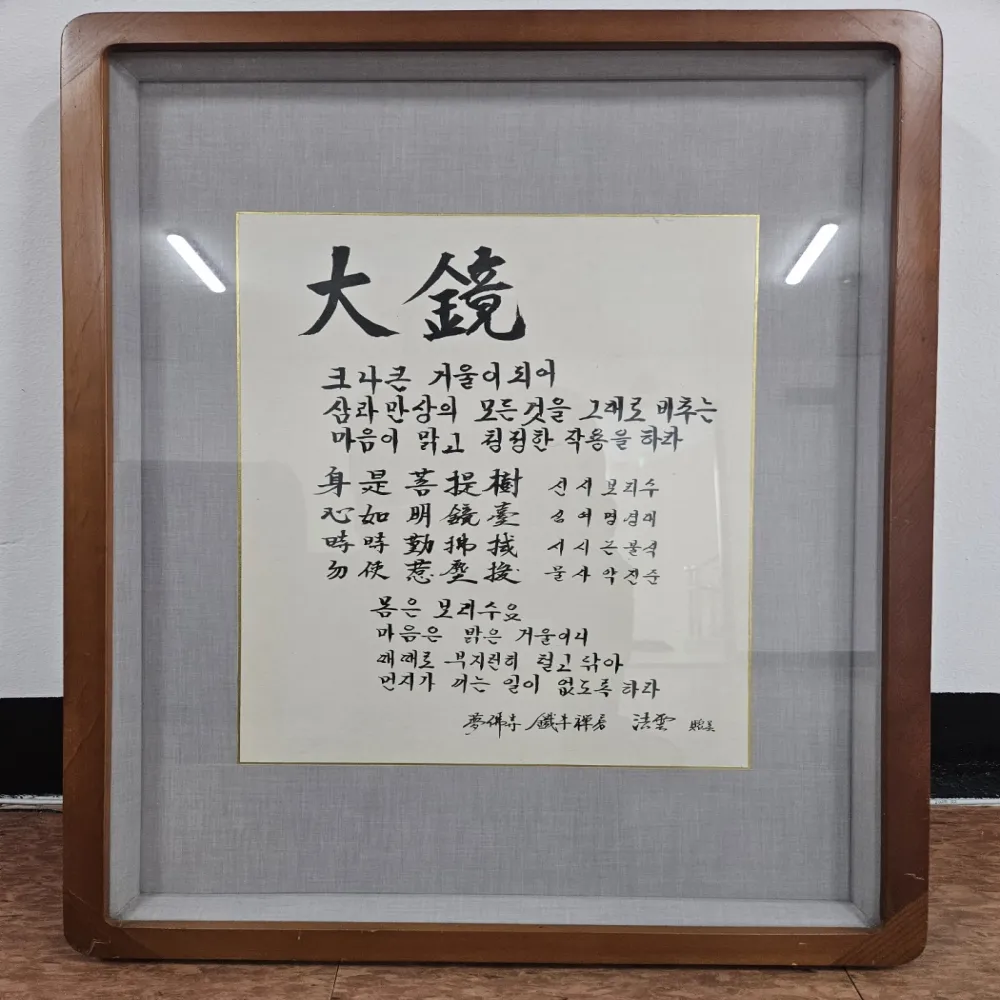 大鏡
크나큰 거울이 되어
삼라만상의 모든것을 그대로 비추는
마음이 맑고 청정한 작용을 하라
身是菩提樹 신시보리수
心如明鏡臺 심여명경대
時時勤拂拭 시시근불식
勿使惹塵埃 물사야진준
몸은 보리수요
마음은 밝은 거울이니
때때로 부지런히 털고 닦아
먼지가 끼는 일이 없도록 하라
夢佛亭 鐵牛禪房 法雲